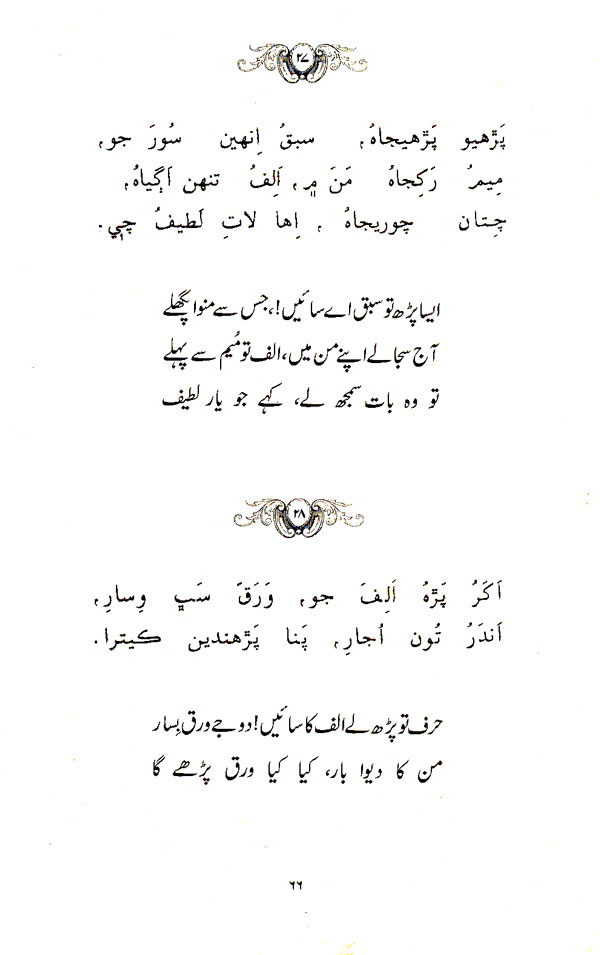 ۲۷
پَڙهيو پَڙهيجاهُ، سبقُ اِنهين سُورَ جو،
مِيمُ رَکِجاهُ مَنَ ۾، اَلِفُ تنهن اَڳياهُ،
چِتان چوريجاهُ ، اِها لاتِ لَطيفُ چي.
ایسا پڑھ تو سبق اے سائیں!، جس سے منوا پگھلے
آج سجا لے اپنے من میں، الف تو مُیم سے پہلے
تو وہ بات سمجھ لے، کہے جو یار لطیف
۲۸
اَکَرُ پَڙهُ اَلِفَ جو، وَرَقَ سَڀ وِسارِ،
اَندَرُ تُون اُجارِ، پَنا پَڙهندين ڪيترا.
حرف تو پڑھ لے الف کا سائیں! دوجے ورق بِسار
من کا دیوا بار، کیا کیا ورق پڑھے گا
٦٦